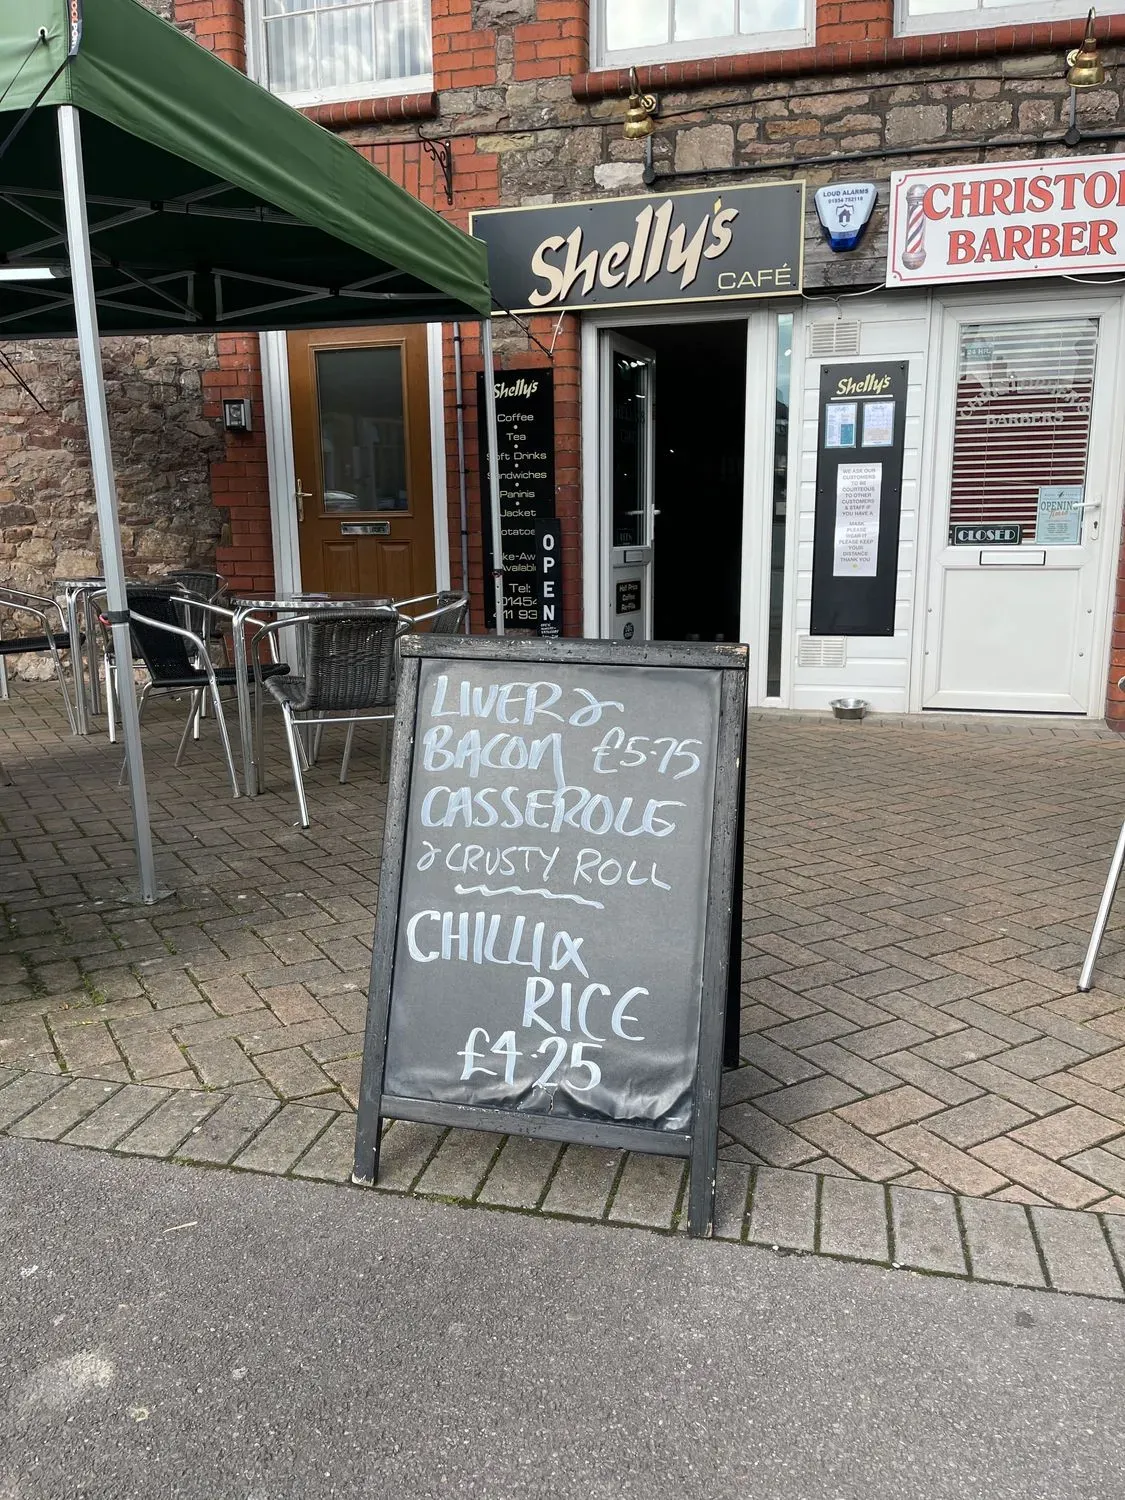 Shelly's
CAFÉ
LOUD ALARMS
CHRISTO
BARBER
Shelly's
Coffee
Tea
Soft Drinks
Sandwiches
Paninis
Jacket
Potatoes
Take-Away
Available
Tel:
01454
411 93
OPEN
Shelly's
WE ASK OUR
CUSTOMERS
TO BE
COURTEOUS
TO OTHER
CUSTOMERS
& STAFF IF
YOU HAVE A
MASK
PLEASE
WEAR IT
PLEASE KEEP
YOUR
DISTANCE
THANK YOU
24 HR
BARBERS
OPENING
CLOSED
LIVER &
BACON £5.75
CASSEROLE
& CRUSTY ROLL
CHILLI &
RICE
£4.25